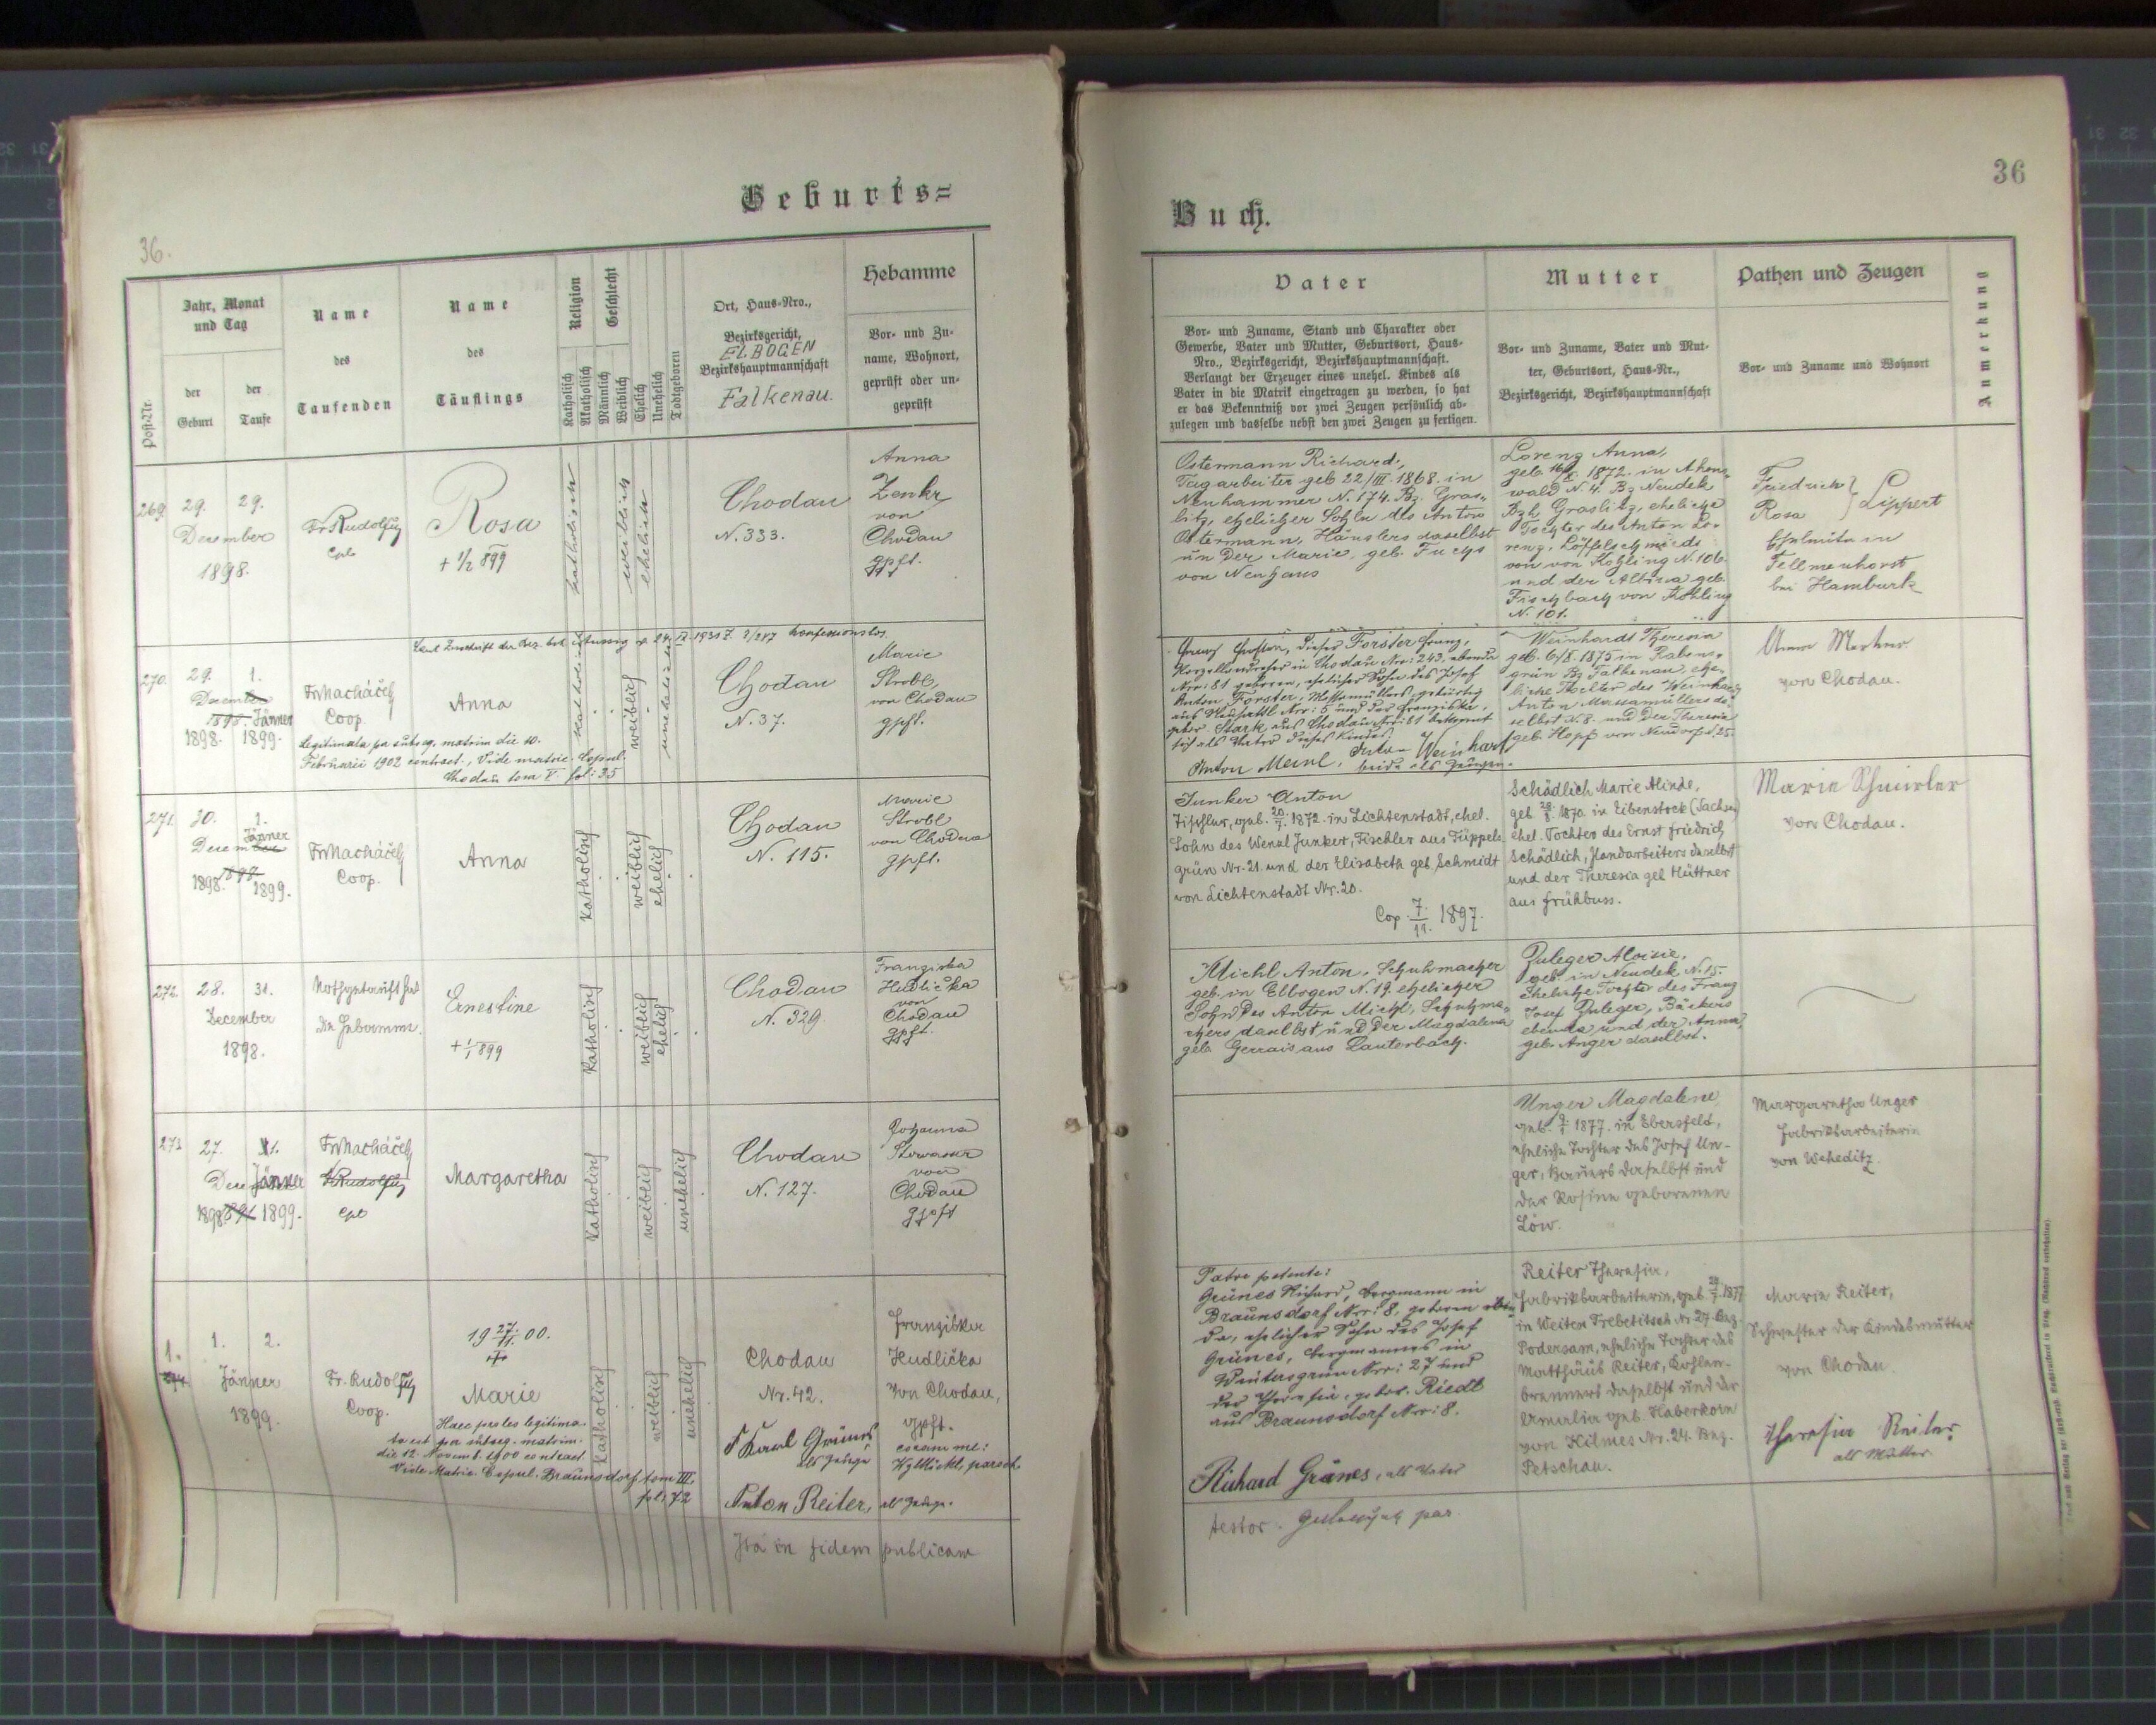 Geburts=
36.
Post-Nr.
Jahr, Monat
und Tag
der
Geburt
der
Taufe
Name
des
Taufenden
Name
des
Täuflings
Religion
Katholisch
Akatholisch
Geschlecht
Männlich
Weiblich
Ehelich
Unehelich
Todtgeboren
Ort, Haus-Nro.,
Bezirksgericht,
ELBOGEN
Bezirkshauptmannschaft
Falkenau.
Hebamme
Vor- und Zu-
name, Wohnort,
geprüft oder un-
geprüft
269.
29.
29.
December
1898.
Fr Rudolf
Cpl.
Rosa
+ 1/2 899
katholisch
weiblich
ehelich
Chodau
N. 333.
Anna
Zenker
von
Chodau
gpft.
Laut Zuschrift der Bez. beh. Aussig v. 24. IX. 1931 konfessionslos.
270.
29.
1.
December
1898. Jänner
1898. 1899.
Fr Macháček
Coop.
Anna
katholisch
weiblich
unehelich
Legitimata per subseq. matrim die 10.
Februarii 1902 contract., Vide matric. Copul.
Chodau tom V fol: 35
Chodau
N. 37.
Marie
Strobl,
von Chodau
gpft.
271.
30.
1.
Jänner
December
1898. 1898 1899.
Fr Macháček
Coop.
Anna
Katholisch
weiblich
ehelich
Chodau
N. 115.
Marie
Strobl
von Chodau
gpft.
272.
28.
31.
December
1898.
Nothgetauft hat
die Hebamme.
Ernestine
+ 1/1 899
Katholisch
weiblich
ehelich
Chodau
N. 329.
Franziska
Hudlička
von
Chodau
gpft.
273
27.
1.
Jänner
1898 1899.
Fr Macháček
Fr Rudolf
Cpl
Margaretha
Katholisch
weiblich
unehelich
Chodau
N. 127.
Johanna
von
Chodau
gpft
1.
274.
1.
2.
Jänner
1899.
Fr. Rudolf
Coop.
19 27/11. 00.
+
Marie
Haec proles legitima-
ta est per subseq. matrim.
die 12 Novemb. 1900 contract.
Vide Matric. Copul. Braunsdorf tom III.
fol: 72
Katholisch
weiblich
unehelich
Chodau
Nr. 42.
Karl Grünes
als Zeuge
Anton Reiter, als Zeuge.
Franziska
Hudlička
von Chodau,
gpft.
coram me:
paroch.
Ita in fidem publicam
Buch.
36
Vater
Vor- und Zuname, Stand und Charakter oder
Gewerbe, Vater und Mutter, Geburtsort, Haus-
Nro., Bezirksgericht, Bezirkshauptmannschaft.
Verlangt der Erzeuger eines unehel. Kindes als
Vater in die Matrik eingetragen zu werden, so hat
er das Bekenntniß vor zwei Zeugen persönlich ab-
zulegen und dasselbe nebst den zwei Zeugen zu fertigen.
Mutter
Vor- und Zuname, Vater und Mut-
ter, Geburtsort, Haus-Nr.,
Bezirksgericht, Bezirkshauptmannschaft
Pathen und Zeugen
Vor- und Zuname und Wohnort
Anmerkung
Ostermann Richard,
Tagarbeiter geb 22/III. 1868. in
Neuhammer N. 174. Bz. Gras-
litz, ehelicher Sohn des Anton
Ostermann, Häuslers daselbst
und der Marie, geb. Fuchs
von Neuhaus
Lorenz Anna,
geb. 1872. in Ahorns-
wald N. 4. Bz Neudek
Bzh. Graslitz, eheliche
Tochter des Anton Lo-
renz, Löffelschmieds
von von Kohling N. 106.
und der Albina geb.
Fischbach von Kohling
N. 101.
Friedrich
Rosa } Lippert
Eheleute in
Tellmenhorst
bei Hamburk
Forster Franz,
Porzellandreher in Chodau Nro: 243, ebenda
Nro: 81 geboren, ehelicher Sohn des Josef
Anton Forster, Massamüllers, gebürtig
aus Neusattl Nro: 5 und der Franziska,
gebor. Stark aus Chodau Nro: 81 bekennt
sich als Vater dieses Kindes.
Anton Meinl, Anton Weinhart
beide als Zeugen.
Weinhardt Theresia
geb. 6/X. 1875 in Rabens-
grün Bz Falkenau, ehe-
liche Tochter des Weinhardt
Anton Massamüllers da-
selbst N. 8. und der Theresia
geb. Hopf von Neudorf N. 25.
Anna
von Chodau.
Junker Anton
Tischler, geb. 20/7. 1872. in Lichtenstadt, ehel.
Sohn des Wenzl Junker, Tischler aus Tüppels-
grün Nr. 21. und der Elisabeth geb. Schmidt
von Lichtenstadt Nr. 20.
Cop. 7./11. 1897.
Schädlich Marie Alinde,
geb. 1870. in Eibenstock (Sachsen)
ehel. Tochter des Ernst Friedrich
Schädlich, Handarbeiters daselbst
und der Theresia geb Hüttner
aus Frühbuss.
Marie
von Chodau.
Michl Anton, Schuhmacher
geb. in Elbogen N. 19. ehelicher
Sohn des Anton Michl, Schuhma-
chers daselbst und der Magdalena
geb. Gerrais aus Lauterbach.
Zuleger Aloisie,
geb. in Neudek N. 15.
Eheliche Tochter des Franz
Josef Zuleger, Bäckers
ebenda und der Anna,
geb. Anger daselbst.
Unger Magdalene,
geb. 1877. in Ebersfeld,
eheliche Tochter des Josef Un-
ger, Bauers daselbst und
der Rosina geborenen
Löw.
Margaretha Unger
Fabriksarbeiterin
von Weheditz.
Patre petente:
Grünes Richard, Bergmann in
Braunsdorf Nro: 8, geboren eben-
da, ehelicher Sohn des Josef
Grünes, Bergmannes in
Wintersgrün Nro: 27 und
der Theresia, gebor. Riedl
aus Braunsdorf Nro: 8.
Richard Grünes, als Vater
Reiter Theresia,
Fabriksarbeiterin, geb. 1877
in Weiten Trebetitsch Nr. 27. Bez.
Podersam, eheliche Tochter des
Matthäus Reiter, Kohlen-
brenners daselbst und der
Amalia geb. Haberkorn
von Kilmes Nr. 24. Bez.
Petschau.
Marie Reiter,
Schwester der Kindesmutter
von Chodau.
Theresia Reiter,
als Mutter
testor. par.